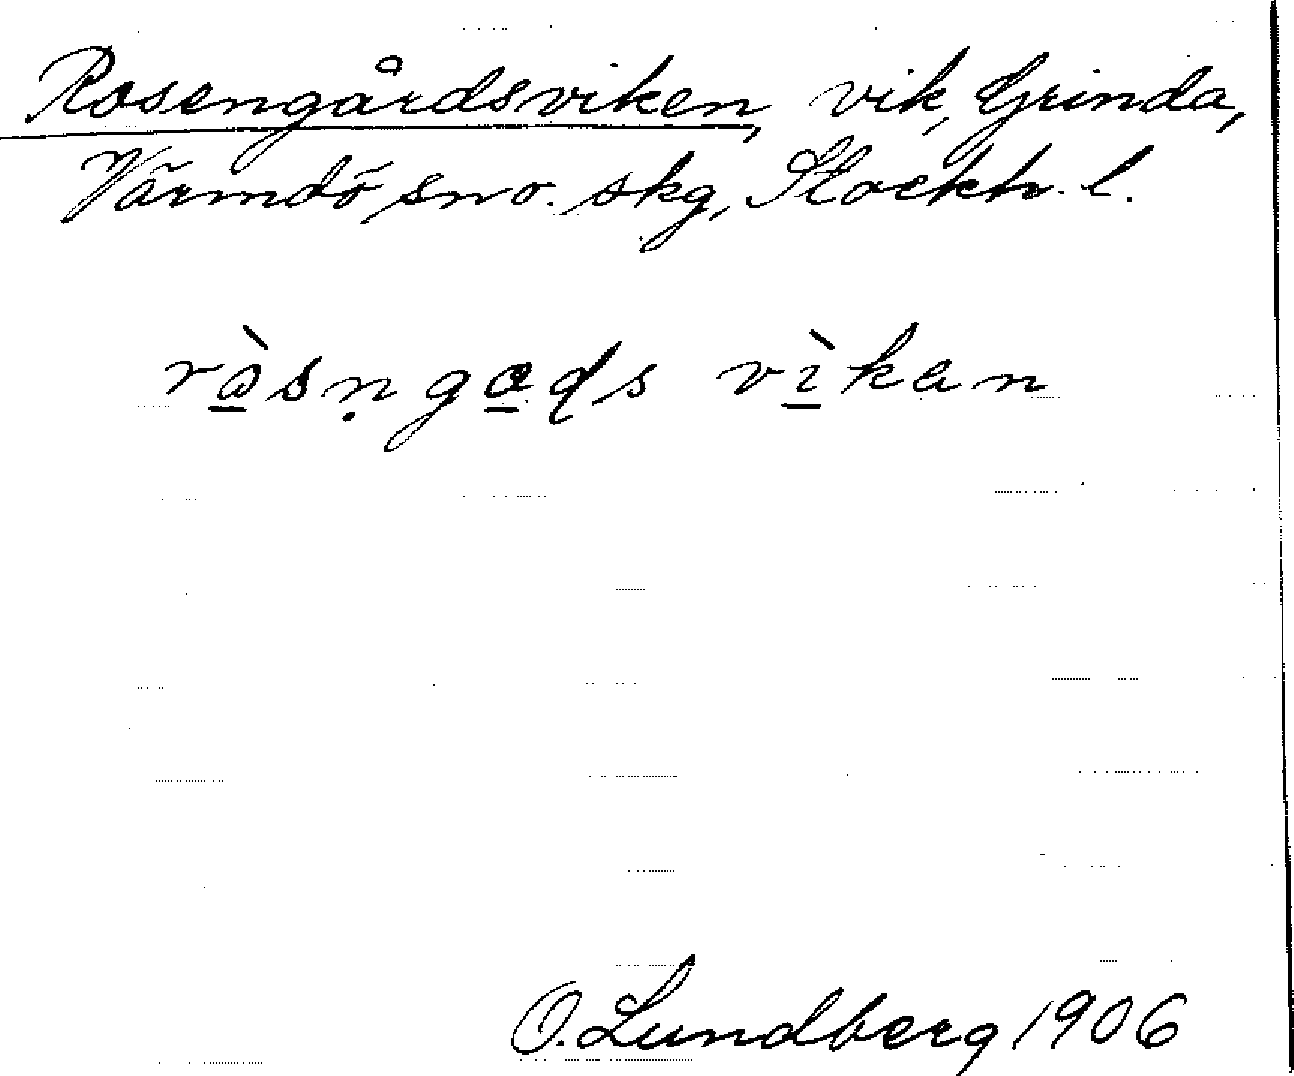 Rosengårdsviken, vik, Grinda,
Värmdö sno. skg, Stockh. l.
vikan
O. Lundberg 1906